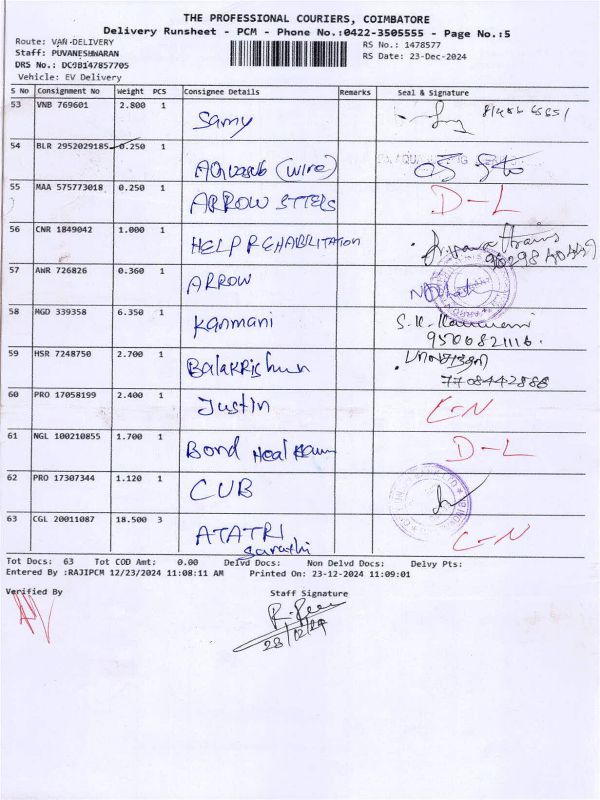 THE PROFESSIONAL COURIERS, COIMBATORE
Delivery Runsheet - PCM - Phone No.:0422-3505555 - Page No.:5
Route: VAN-DELIVERY
RS No.: 1478577
Staff: PUVANESHWARAN
RS Date: 23-Dec-2024
DRS No.: DC9B147857705
Vehicle: EV Delivery
S No Consignment No Weight PCS Consignee Details Remarks Seal & Signature
53 VNB 769601 2.800 1 Samy
54 BLR 2952029185 0.250 1 (wire)
55 MAA 575773018 0.250 1 ARROW D-L
56 CNR 1849042 1.000 1 HELP REHABILITATION
57 ANR 726826 0.360 1 ARROW
58 MGD 339358 6.350 1 Kanmani
9500821116.
59 HSR 7248750 2.700 1
7708442888
60 PRO 17058199 2.400 1 Justin C-N
61 NGL 100210855 1.700 1 Bond D-L
62 PRO 17307344 1.120 1 CUB
63 CGL 20011087 18.500 3 ATATRI C-N
Sarathi
Tot Docs: 63 Tot COD Amt: 0.00 Delvd Docs: Non Delvd Docs: Delvy Pts:
Entered By :RAJIPCM 12/23/2024 11:08:11 AM Printed On: 23-12-2024 11:09:01
Verified By
Staff Signature